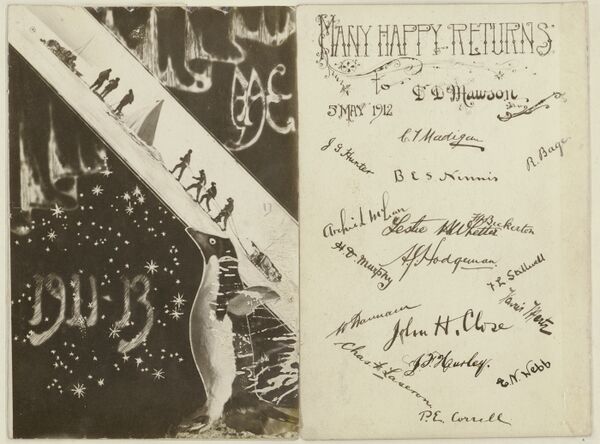 AAE
1911-13
MANY HAPPY RETURNS
to D D Mawson
5 MAY 1912
C T Madigan
J G Hunter
R. Bage
B E S Ninnis
Archie L McLean
Leslie H Whetter
F H Bickerton
H D Murphy
A J Hodgeman
F L Stillwell
W Hannam
John H. Close
Chas F Laseron
J F Hurley.
E. N. Webb
P. E. Correll